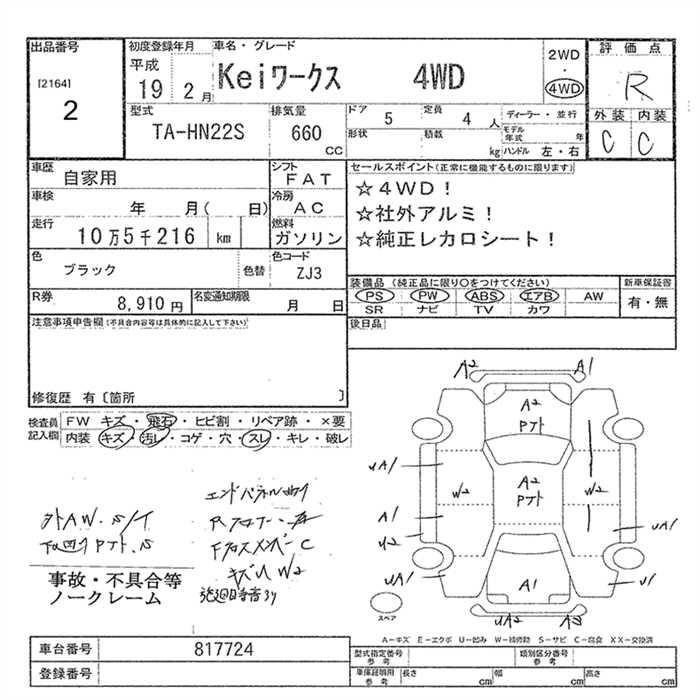 出品番号
[2164]
2
初度登録年月
平成
19 2月
車名・グレード
Keiワークス 4WD
2WD
・
4WD
評価点
R
外装 内装
C C
型式
TA-HN22S
排気量
660
CC
ドア
5
定員
4人
形状
積載
kg
ディーラー・並行
モデル年式
年
ハンドル 左・右
車歴
自家用
シフト
FAT
車検
年 月( 日)
冷房
AC
走行
10万5千216 km
燃料
ガソリン
色
ブラック
色替
色コード
ZJ3
R券
8,910円
名変通知期限
月 日
セールスポイント(正常に機能するものに限ります)
☆4WD!
☆社外アルミ!
☆純正レカロシート!
装備品 (純正品に限り〇をつけてください)
新車保証書
PS PW ABS エアB AW
SR ナビ TV カワ
有・無
後日品
注意事項申告欄(不具合内容等は具体的に記入して下さい)
修復歴 有〔箇所 〕
検査員
記入欄
FW キズ・飛石・ヒビ割・リペア跡・×要
内装 キズ・汚レ・コゲ・穴・スレ・キレ・破レ
外AW.S/T
エンドパネル曲り
キズU W2
事故・不具合等
ノークレーム
A2 A1
A2
Pフト
UA1
W2
A2
Pフト
W2
A1
U2
UA1
UA1
A1
U1
UA2
A3
スペア
A-キズ E-エクボ U-凹み W-補修跡 S-サビ C-腐食 XX-交換済
車台番号
817724
登録番号
型式指定番号
参考
類別区分番号
参考
車庫証明用
参考
長さ cm
幅 cm
高さ cm